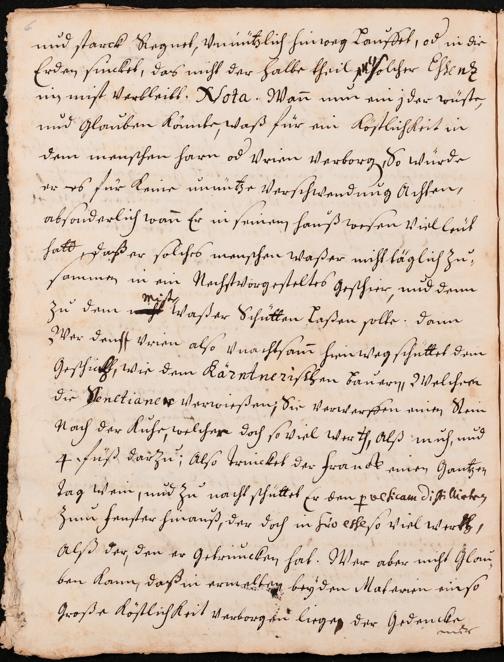 und starck Regnet, Vnnützlich hinweg Lauffet, od in die
Erden sincket, das nicht der halbe theil solcher Essenz
im mist Verbleibt. Nota. Wañ nun ein jder wüste,
und Glauben Könnte, waß für ein Köstlichkeit in
dem menschen harn od Vrien Verborg, So würde
er es für Keine unnütze Verschwendung Achten,
absonderlich wañ Er in seinem hauß wesen Viel leüt
hatt, daß er solches menschen waßer nicht täglich zu,
sammen in ein Geschier, und dem
zu dem mist Waßer Schütten Laßen solte. dann
Wer den Vrien also Vnachtsam hinweg schüttet dem
Geschicht, wie dem Kärntnerischen bauern, Welchem
die Venetianer Verwiesen, Sie Verwerffen einen Stein
Nach der Kuhe, welcher doch so Viel werth, Alß und
4 füß darzu; Also trincket der Franck einen Gantzen
Tag wein, und zu nacht schüttet Er den
Zum fenster hinauß, der doch in so viel werth,
Alß der, den er Getruncken hat. Wer aber nicht Glau
ben Kann, daß in ermelten beyden Materien ein so
Große Köstlichkeit Verborgen liege, der Gedencke
nur